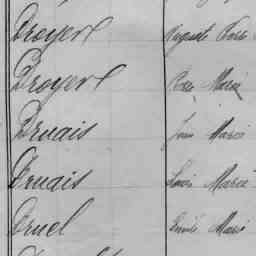 Droyer Auguste
Droyer Rose Marie
Druais Jean Marie
Druais Louis Marie
Druel Emile Marie